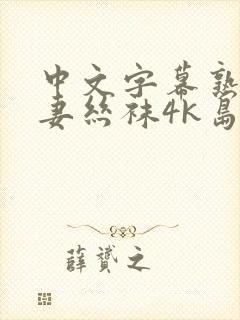 中文字幕熟
妻丝袜4K岛
薛赟之